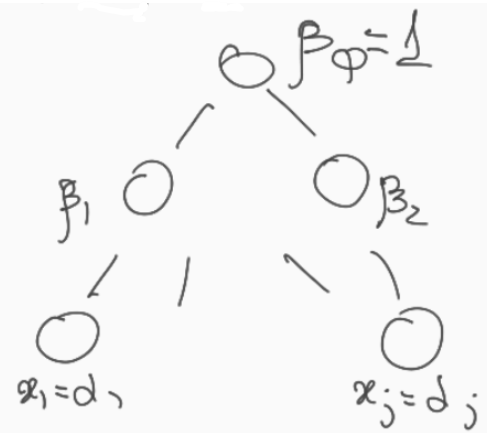 β_φ = 1
β₁
β₂
x₁ = α₁
x_j = α_j